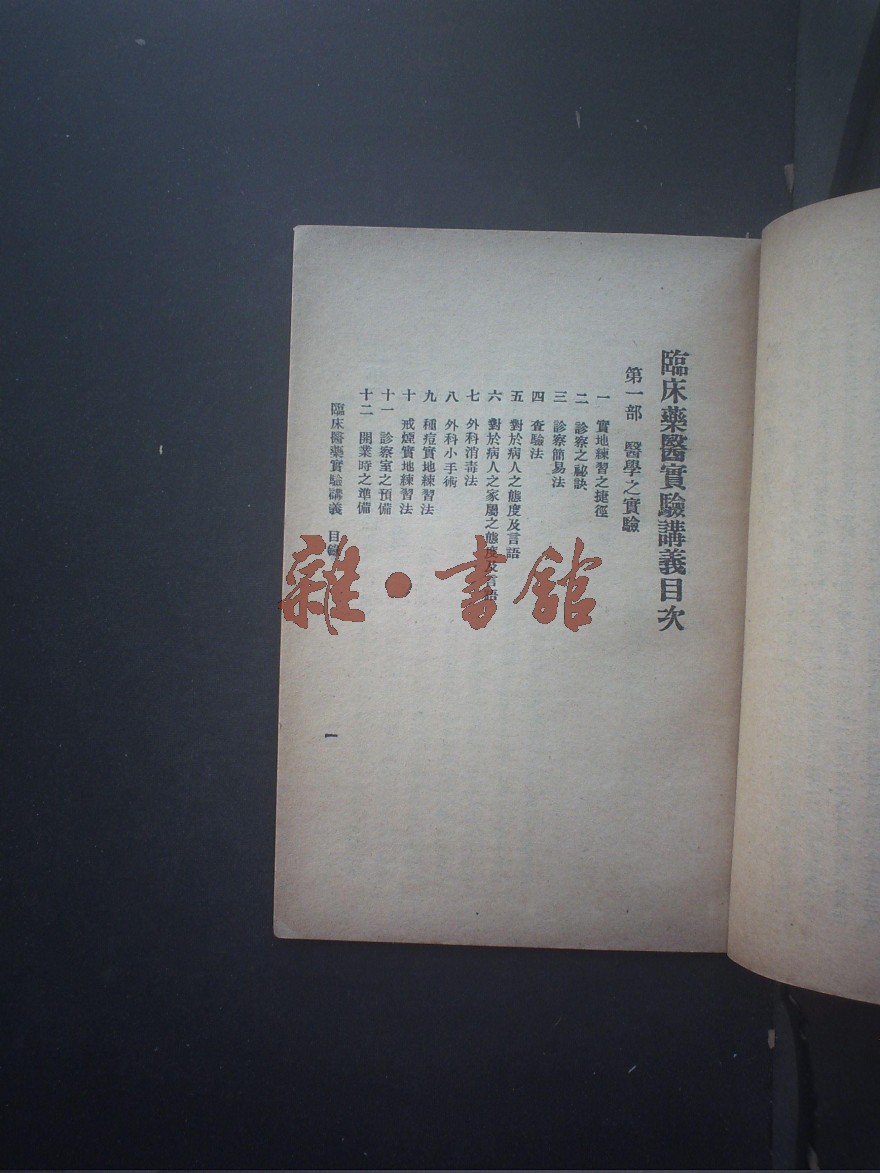 臨床藥醫實驗講義目次
第一部 醫學之實驗
一 實地練習之捷徑
二 診察之祕訣
三 診察簡易法
四 查驗法
五 對於病人之態度及言語
六 對於病人之家屬之態度及言語
七 外科消毒法
八 外科小手術
九 種痘實地練習法
十 戒煙實地練習法
十一 診察室之預備
十二 開業時之準備
臨床醫藥實驗講義 目
一
雜·書館